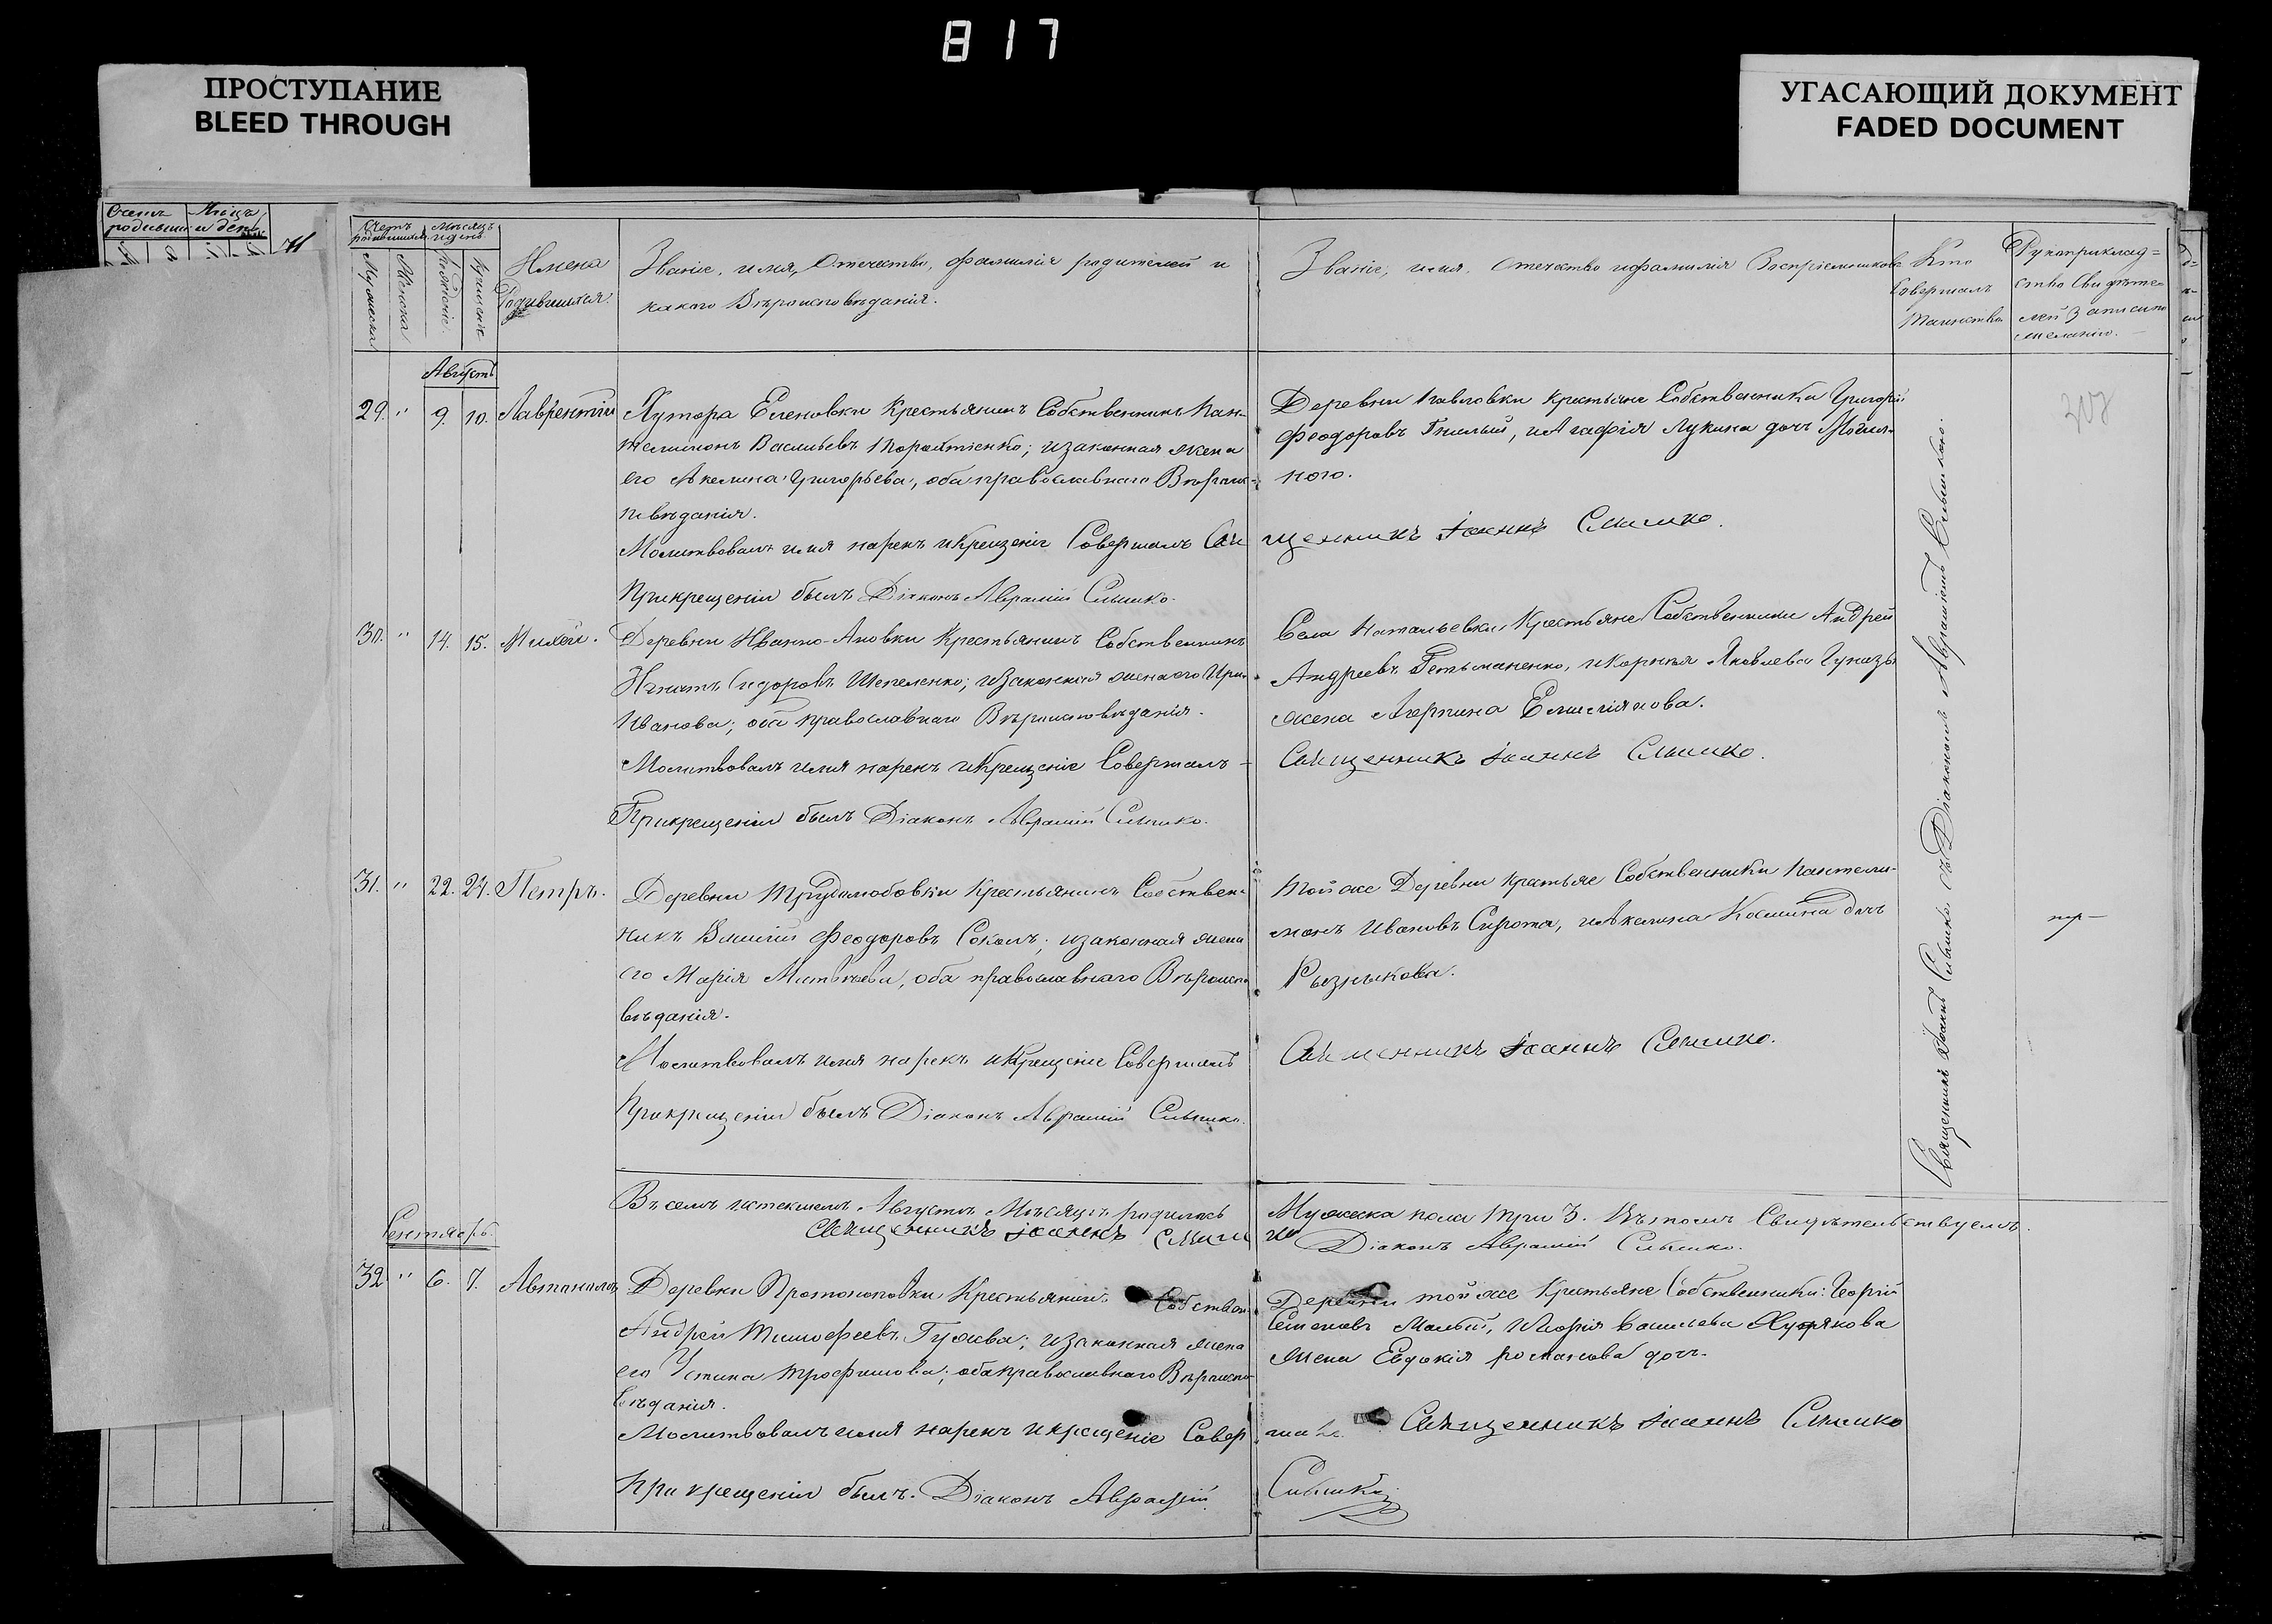 817
ПРОСТУПАНИЕ
BLEED THROUGH
УГАСАЮЩИЙ ДОКУМЕНТ
FADED DOCUMENT
Счетъ родившихся
Мѣсяцъ и день
Мужеска
Женска
Рожденіе.
Крещеніе
Имена
Родившихся.
Званіе, имя, Отечество, фамиліе родителей и
какого Вѣроисповѣданія.
Званіе, имя, Отечество и фамилія Воспріемниковъ
Кто
Совершалъ
Таинство
Рукоприклад=
ство Свидѣте=
лей записи по
желанію.
Августъ
29. " 9. 10. Лаврентій
Хутора Еленовки Крестьянинъ Собственникъ Пан-
телимонъ Васильевъ; и законная жена
его Акелина Григорьева, оба православнаго Вѣроис-
повѣданія.
Молитвовалъ имя нарекъ и Крещеніе Совершалъ Свя
При крещеніи былъ Діаконъ Аврамій Слышко.
Деревни Павловки крестьяне Собственники Григорій
Феодоровъ Гнилый, и Агафія Лукина дочь Могил-
ного.
щенникъ Іоаннъ Слышко.
307
30. " 14. 15. Михей.
Деревни Ивано-Ановки Крестьянинъ Собственникъ
Игнатъ Сидоровъ Шепеленко; и Законная жена его Ири-
Иванова; оба православнаго Вѣроисповѣданія.
Молитвовалъ имя нарекъ и Крещеніе Совершалъ
При крещеніи былъ Діаконъ Аврамій Слышко.
Села Натальевки, Крестьяне Собственники Андрей
Андреевъ Гетьманенко, и Корнѣя Яковлева
жена Агрпина Емиліянова.
Священникъ Іоаннъ Слышко.
31. " 22. 27. Петръ.
Деревни Трудолюбовки Крестьянинъ Собствен-
никъ Феодоровъ Соколъ; и законная жена
его Марія Матвѣева, оба православнаго Вѣроиспо
вѣданія.
Молитвовалъ имя нарекъ и Крещеніе Совершалъ
При крещеніи былъ Діаконъ Аврамій Слышко.
Той же Деревни крестьяне Собственники Пантели-
монъ Ивановъ Сирота, и Акелина Космина дочь
Рызныкова.
Священникъ Іоаннъ Слышко.
Священникъ Іоаннъ Слышко съ Діакономъ Авраміемъ Слышкою.
Въ семъ истекшемъ Августѣ Мѣсяцѣ родилось
Мужеска пола три 3. Въ томъ Свидѣтельствуемъ.
Священникъ Іоаннъ Слыш
ко Діаконъ Аврамій Слышко.
Сентябрь.
32 " 6. 7. Автономъ
Деревни Протопоповки Крестьянинъ Собствен-
Андрей Тимофеевъ Гужва; и законная жена
его Устина Трофимова; оба православнаго Вѣроиспо-
вѣданія.
Молитвовалъ имя нарекъ и крещеніе Совер
При крещеніи былъ. Діаконъ Аврамій
Деревни той же Крестьяне Собственники: Георгій
Семеновъ Малый, и Василева
жена Евдокія романова дочь.
шалъ Священникъ Іоаннъ Слышко
Слышко